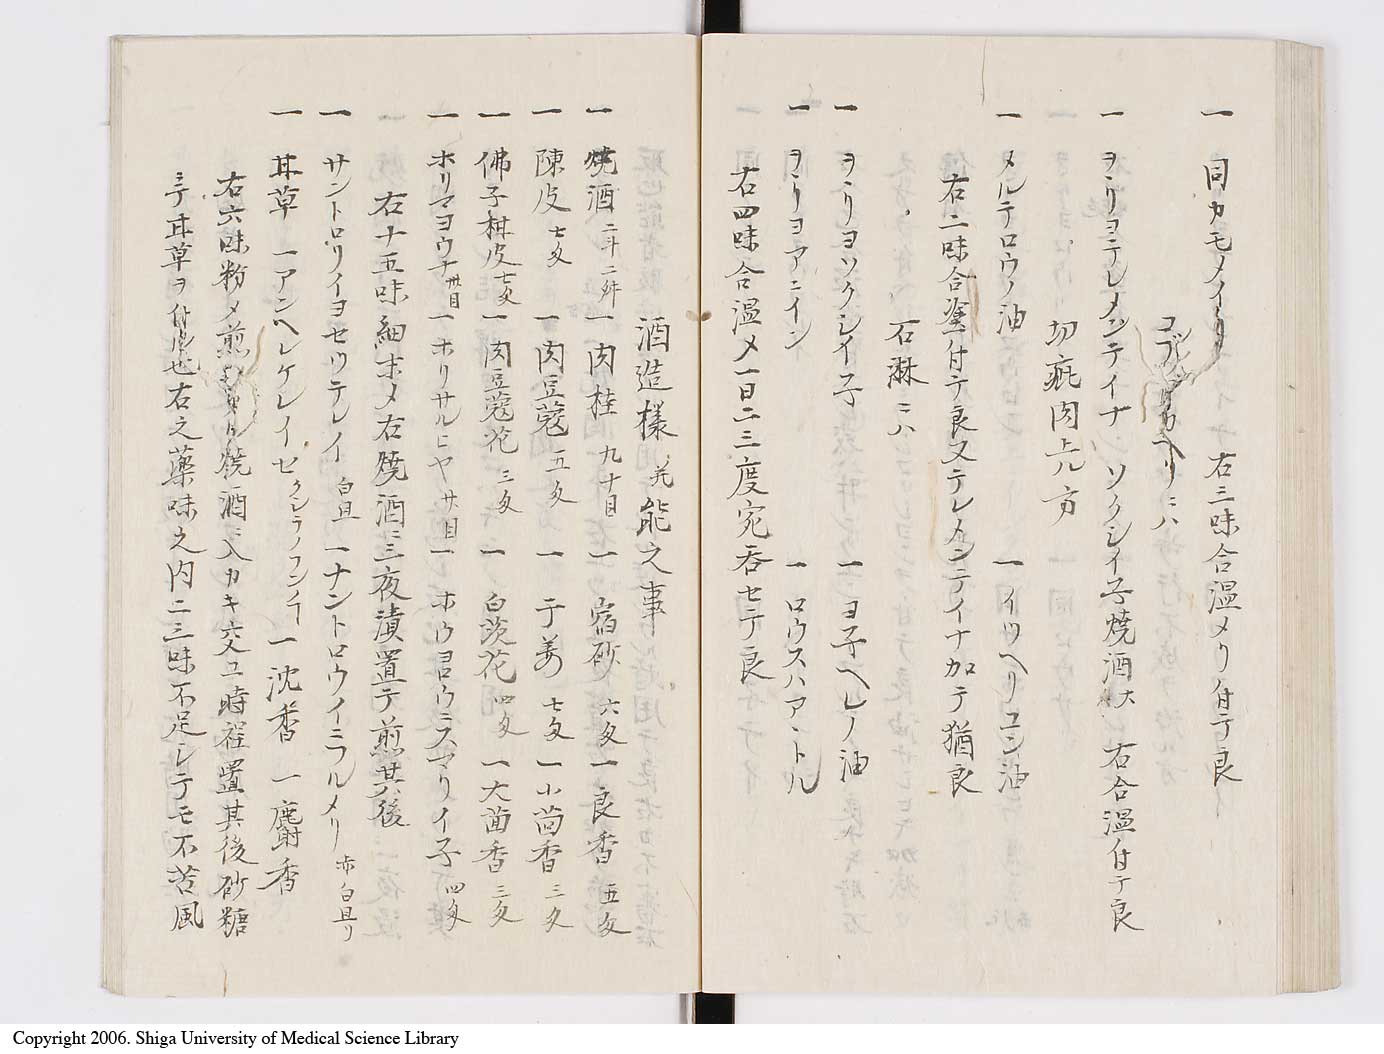 一 同カモメイリ 右三味合温メリ付テ良
コブラカヘリニハ
一 ヲヽリヨテレメンテイナ ソクシイ子焼酒大 右合温付テ良
切疵肉上ル方
一 メルテロウノ油 一 イツヘリコン油
右二味合塗付テ良又テレメンテイナ加テ猶良
石淋ニハ
一 ヲヽリヨソクシイ子 一 ヨ子ヘレノ油
一 ヲヽリヨアニイン 一 ロウスハアヽトル
右四味合温メ一日ニ三度宛呑セテ良
酒造様并能之事
一 焼酒 二斗二舛 一 肉桂 九十目 一 宿砂 六匁 一 良香 五匁
一 陳皮 七匁 一 肉豆蔲 五匁 一 干姜 七匁 一 小茴香 三匁
一 佛子柑皮 七匁 一 肉豆蔲花 三匁 一 白茨花 四匁 一 大茴香 三匁
一 ホリマヨウナ 卅目 一 ホリサルヒヤ 廿目 一 ホウ君ウミスマリイ子 四匁
右十五味細末メ右焼酒ニ三夜漬置テ煎其後
一 サントロリイヨセウテレイ 白且 一 ナントロウイミフルメリ 赤白且リ
一 甘草 一 アンヘレケレイセ クレラノフンイ 一 沈香 一 麝香
右六味粉メ煎 焼酒ニ入カキ交ユ時程置其後砂糖
ニテ甘草ヲ 也右之薬味之内二三味不足シテモ不苦風